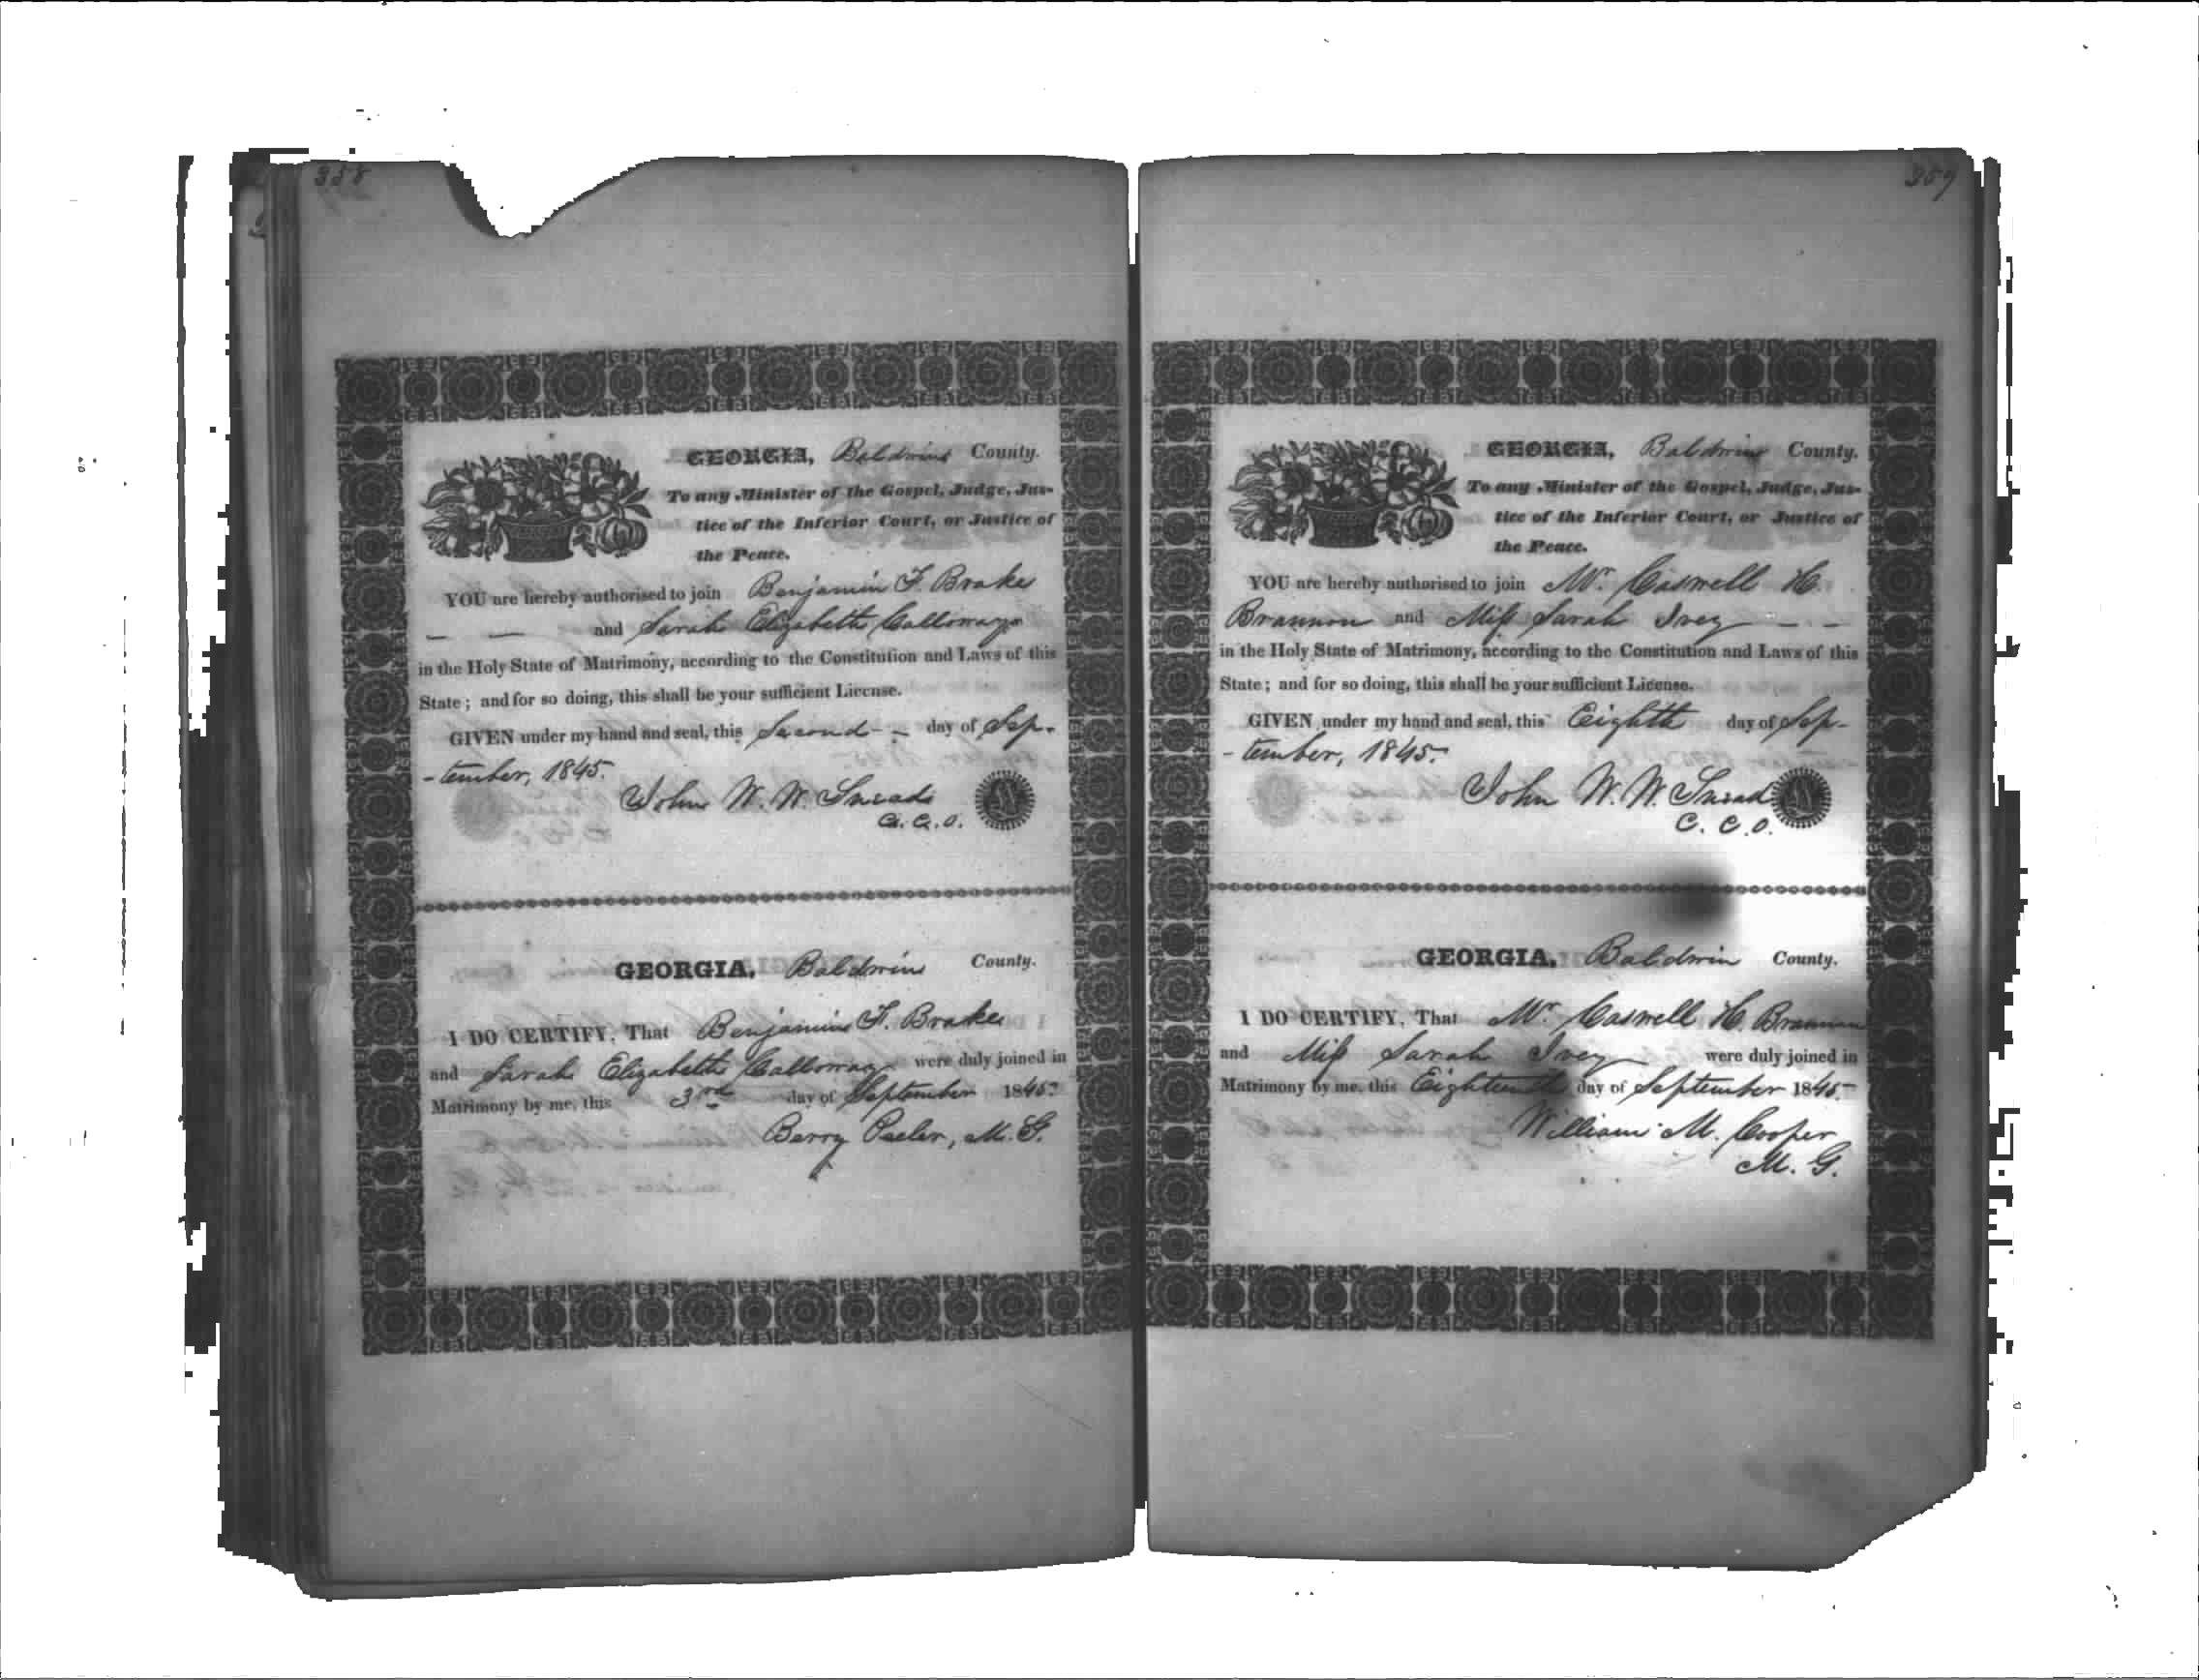 358
GEORGIA, Baldwin County.
To any Minister of the Gospel, Judge, Jus-
tice of the Inferior Court, or Justice of
the Peace.
YOU are hereby authorised to join Benjamin F. Brake
— — and Sarah Elizabeth Calloway
in the Holy State of Matrimony, according to the Constitution and Laws of this
State; and for so doing, this shall be your sufficient License.
GIVEN under my hand and seal, this Second - - day of Sep-
-tember, 1845.
John W. W. Snead
C. C. O.
GEORGIA, Baldwin County.
I DO CERTIFY, That Benjamin F. Brake
and Sarah Elizabeth Calloway were duly joined in
Matrimony by me, this 3rd day of September 1845.
Berry Peeler, M. G.
359
GEORGIA, Baldwin County.
To any Minister of the Gospel, Judge, Jus-
tice of the Inferior Court, or Justice of
the Peace.
YOU are hereby authorised to join Mr. Caswell H.
Brannon and Miss Sarah Ivey — —
in the Holy State of Matrimony, according to the Constitution and Laws of this
State; and for so doing, this shall be your sufficient License.
GIVEN under my hand and seal, this Eighth day of Sep-
-tember, 1845.
John W. W. Snead
C. C. O.
GEORGIA, Baldwin County.
I DO CERTIFY, That Mr. Caswell H. Brannon
and Miss Sarah Ivey were duly joined in
Matrimony by me, this Eighteenth day of September 1845.
William M. Cooper
M. G.